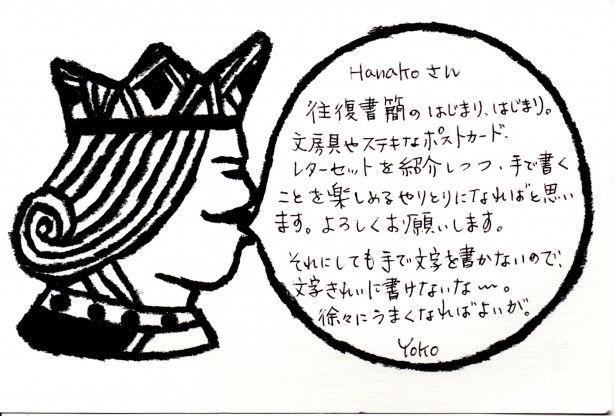 Hanakoさん
往復書簡のはじまり、はじまり。
文房具やステキなポストカード、
レターセットを紹介しつつ、手で書く
ことを楽しめるやりとりになればと思い
ます。よろしくお願いします。
それにしても手で文字を書かないので、
文字きれいに書けないな〜。
徐々にうまくなればよいが。
Yoko